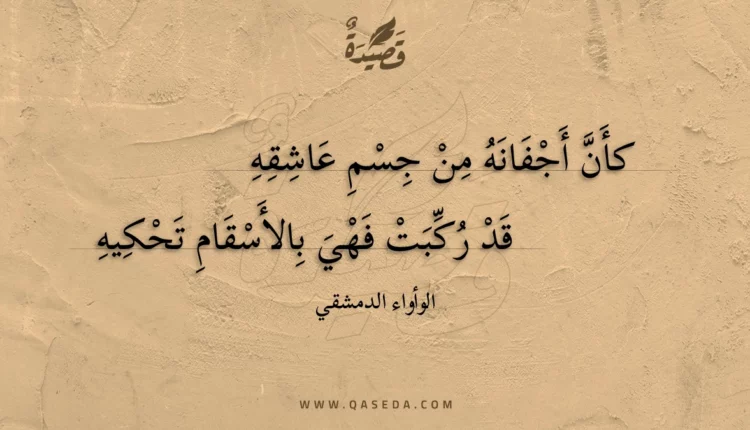 قَصِيْدَةٌ
كأَنَّ أَجْفَانَهُ مِنْ جِسْمِ عَاشِقِهِ
قَدْ رُكِّبَتْ فَهْيَ بِالأَسْقَامِ تَحْكِيهِ
الوأواء الدمشقي
WWW.QASEDA.COM